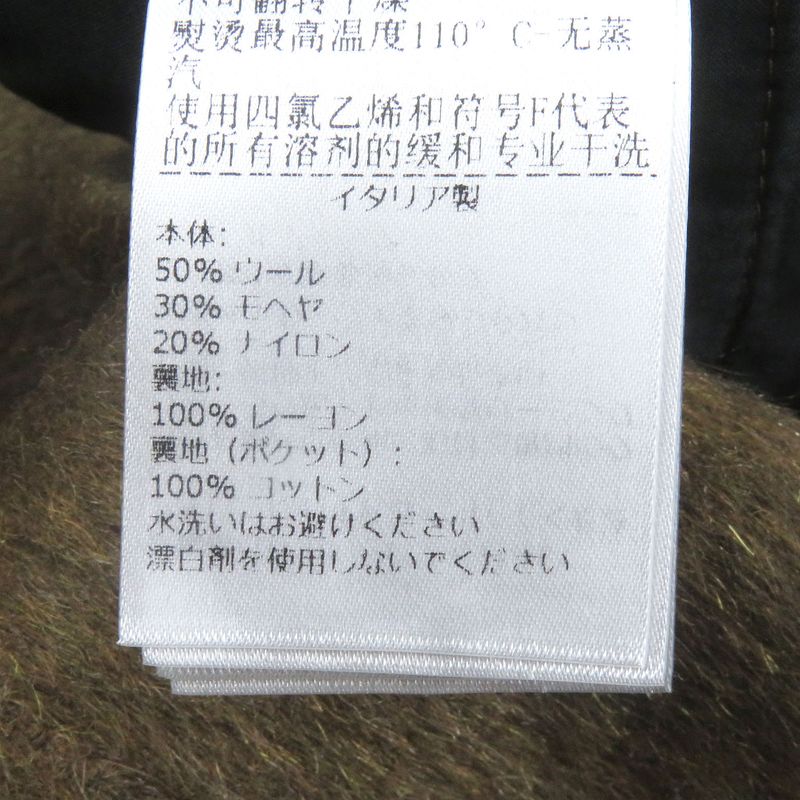 不可翻转干燥
熨烫最高温度110° C-无蒸
汽
使用四氯乙烯和符号F代表
的所有溶剂的缓和专业干洗
イタリア製
本体:
50% ウール
30% モヘヤ
20% ナイロン
裏地:
100% レーヨン
裏地 (ポケット) :
100% コットン
水洗いはお避けください
漂白剤を使用しないでください